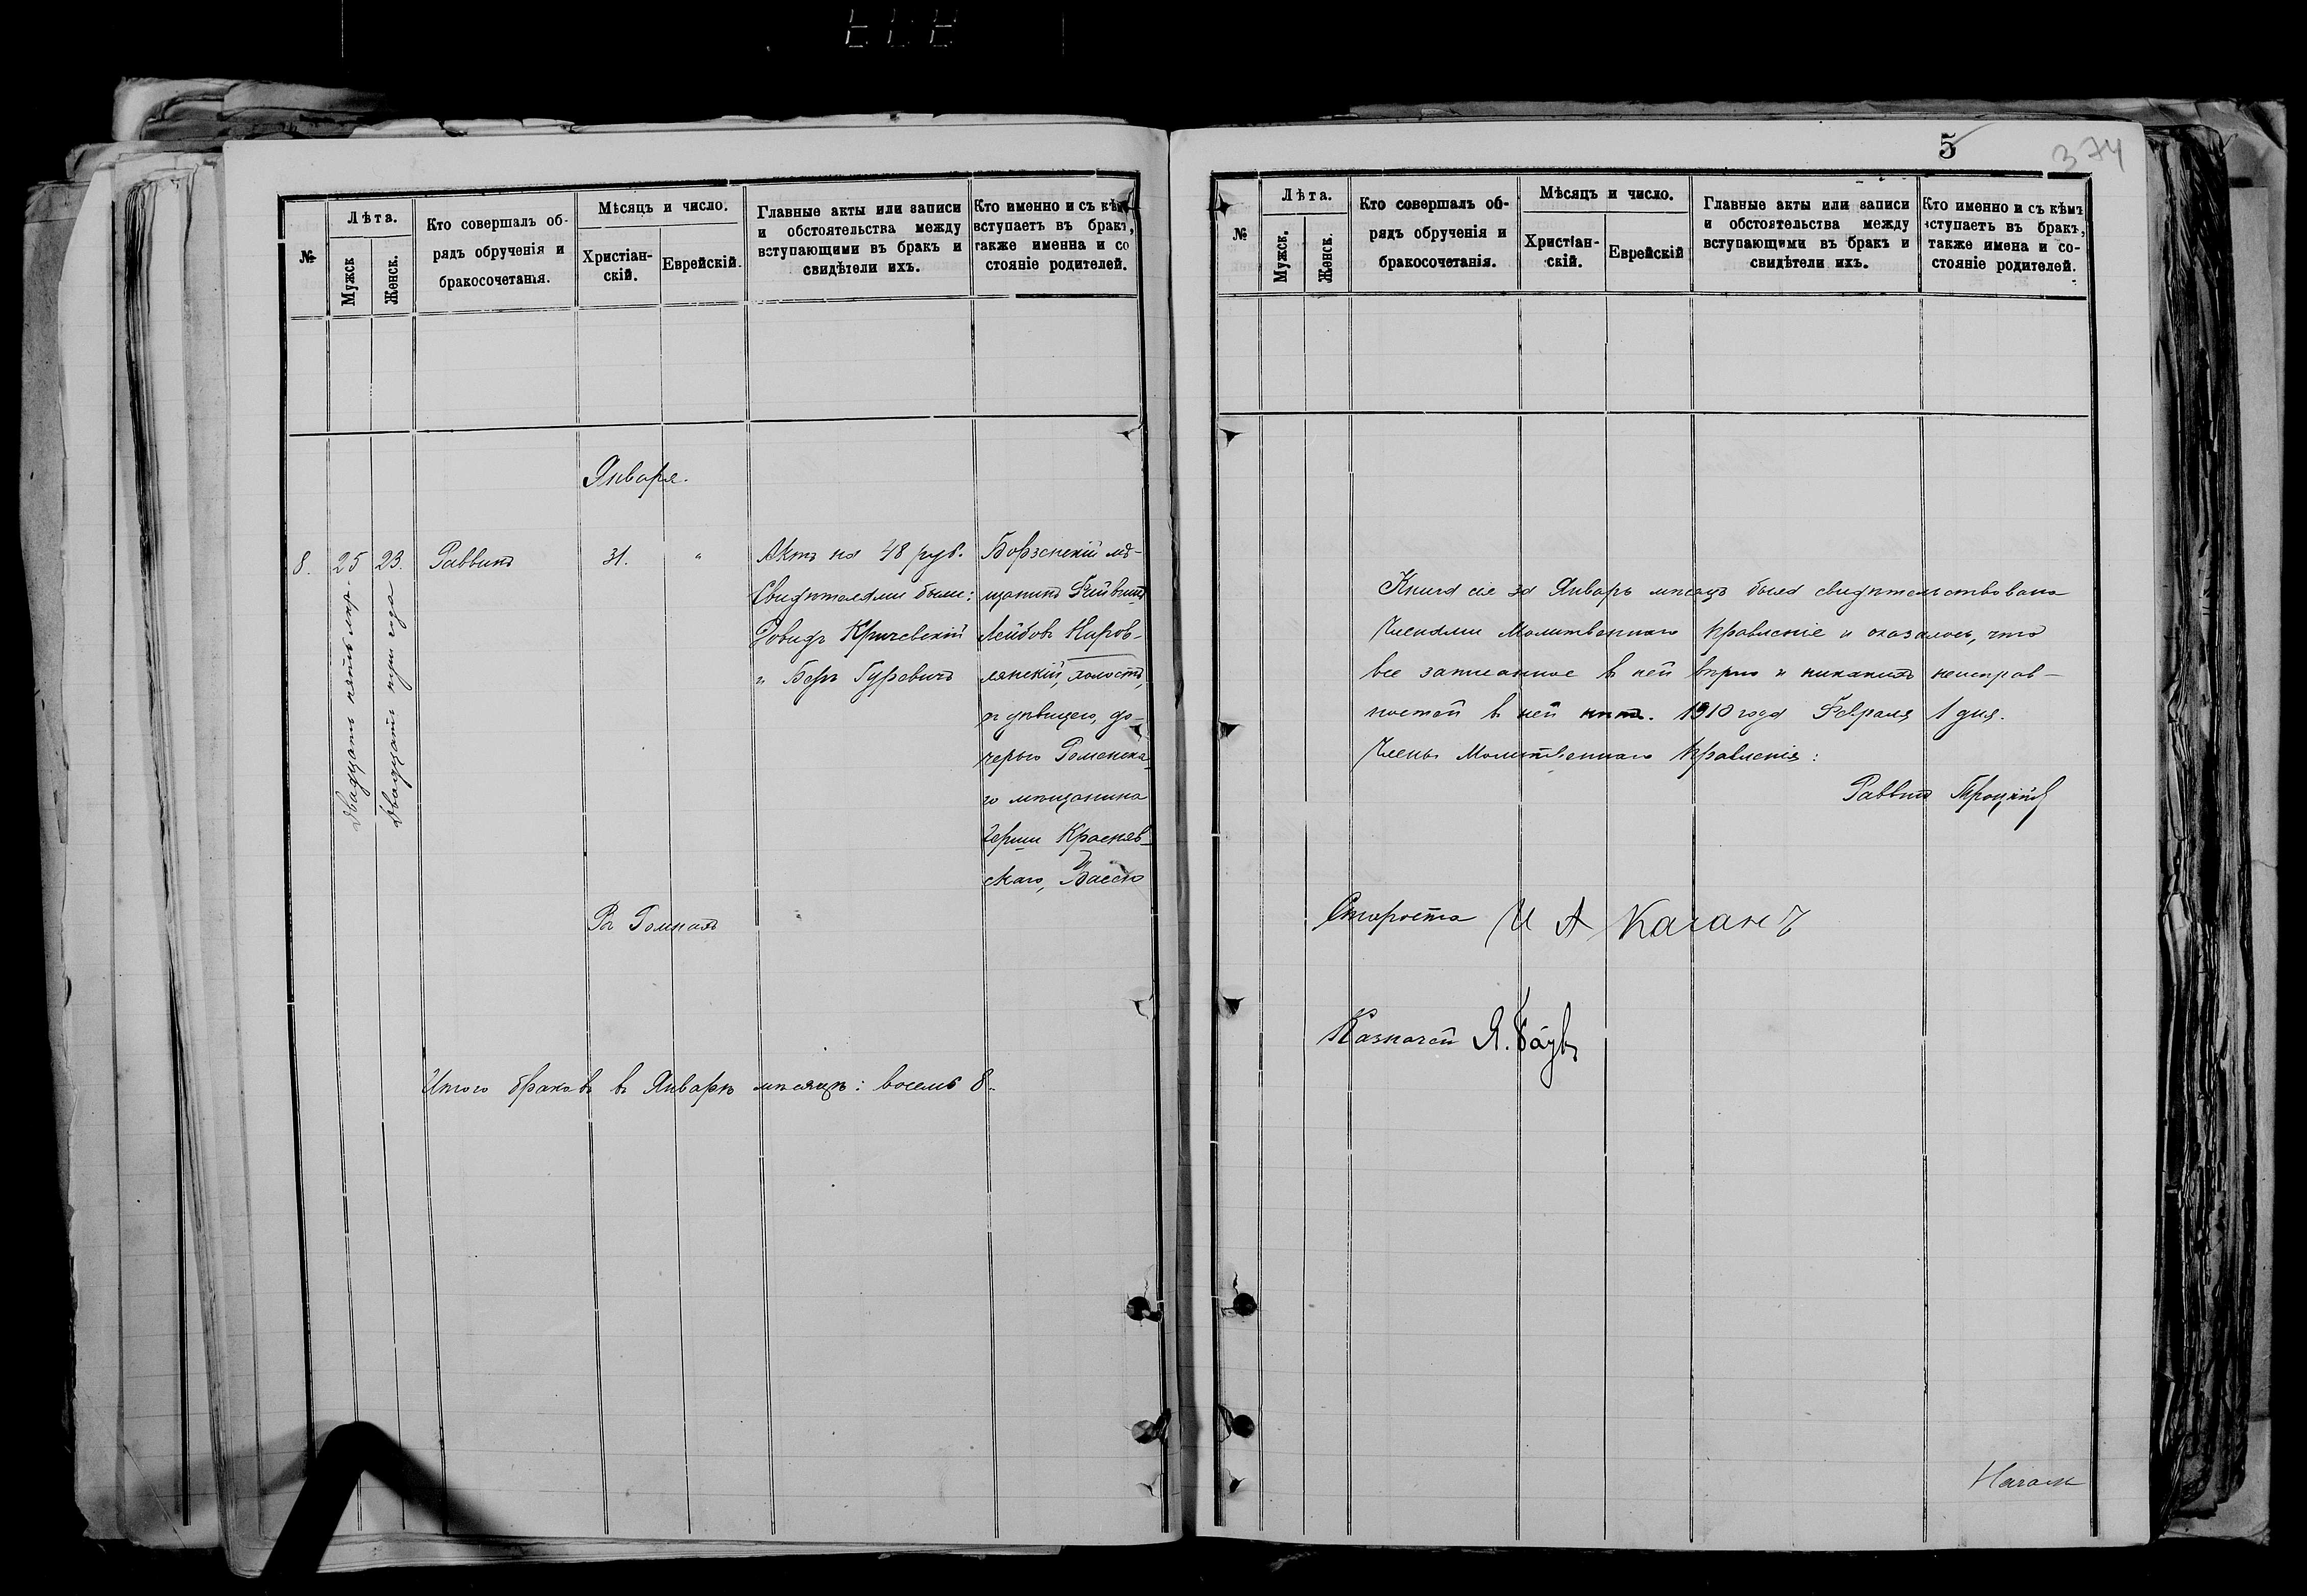 №
Лѣта.
Мужск
Женск.
Кто совершалъ об-
рядъ обрученія и
бракосочетанія.
Мѣсяцъ и число.
Христіан-
скій.
Еврейскій.
Главные акты или записи
и обстоятельства между
вступающими въ бракъ и
свидѣтели ихъ.
Кто именно и съ кѣмъ
вступаетъ въ бракъ,
также именна и со
стояніе родителей.
Января.
8.
25
двадцать пять лѣт
23.
двадцать три года
Раввинъ
31.
"
Актъ на 48 руб.
Свидѣтелями были:
Довидъ Кричевскій
и Беръ Гуревичъ
Борзенскій мѣ-
щанинъ Фейвишъ
Лейбовъ
лянскій, холостъ,
съ дѣвицею, до-
черью Роменска-
го мѣщанина
Герши Красняв-
скаго, Бассю
Въ Ромнахъ
Итого браковъ въ Январѣ мѣсяцѣ: восемь 8.
5
374
№
Лѣта.
Мужск.
Женск.
Кто совершалъ об-
рядъ обрученія и
бракосочетанія.
Мѣсяцъ и число.
Христіан-
скій.
Еврейскій
Главные акты или записи
и обстоятельства между
вступающими въ бракъ и
свидѣтели ихъ.
Кто именно и съ кѣмъ
вступаетъ въ бракъ,
также имена и со-
стояніе родителей.
Книга сія за Январь мѣсяцъ была свидѣтельствована
Членами Молитвеннаго Правленія и оказалось, что
все записанное въ ней вѣрно и никакихъ неисправ-
ностей въ ней нѣтъ. 1910 года Февраля 1 дня.
Члены Молитвеннаго Правленія:
Раввинъ Троцкій
Староста И А Каганъ
Казначей Я.